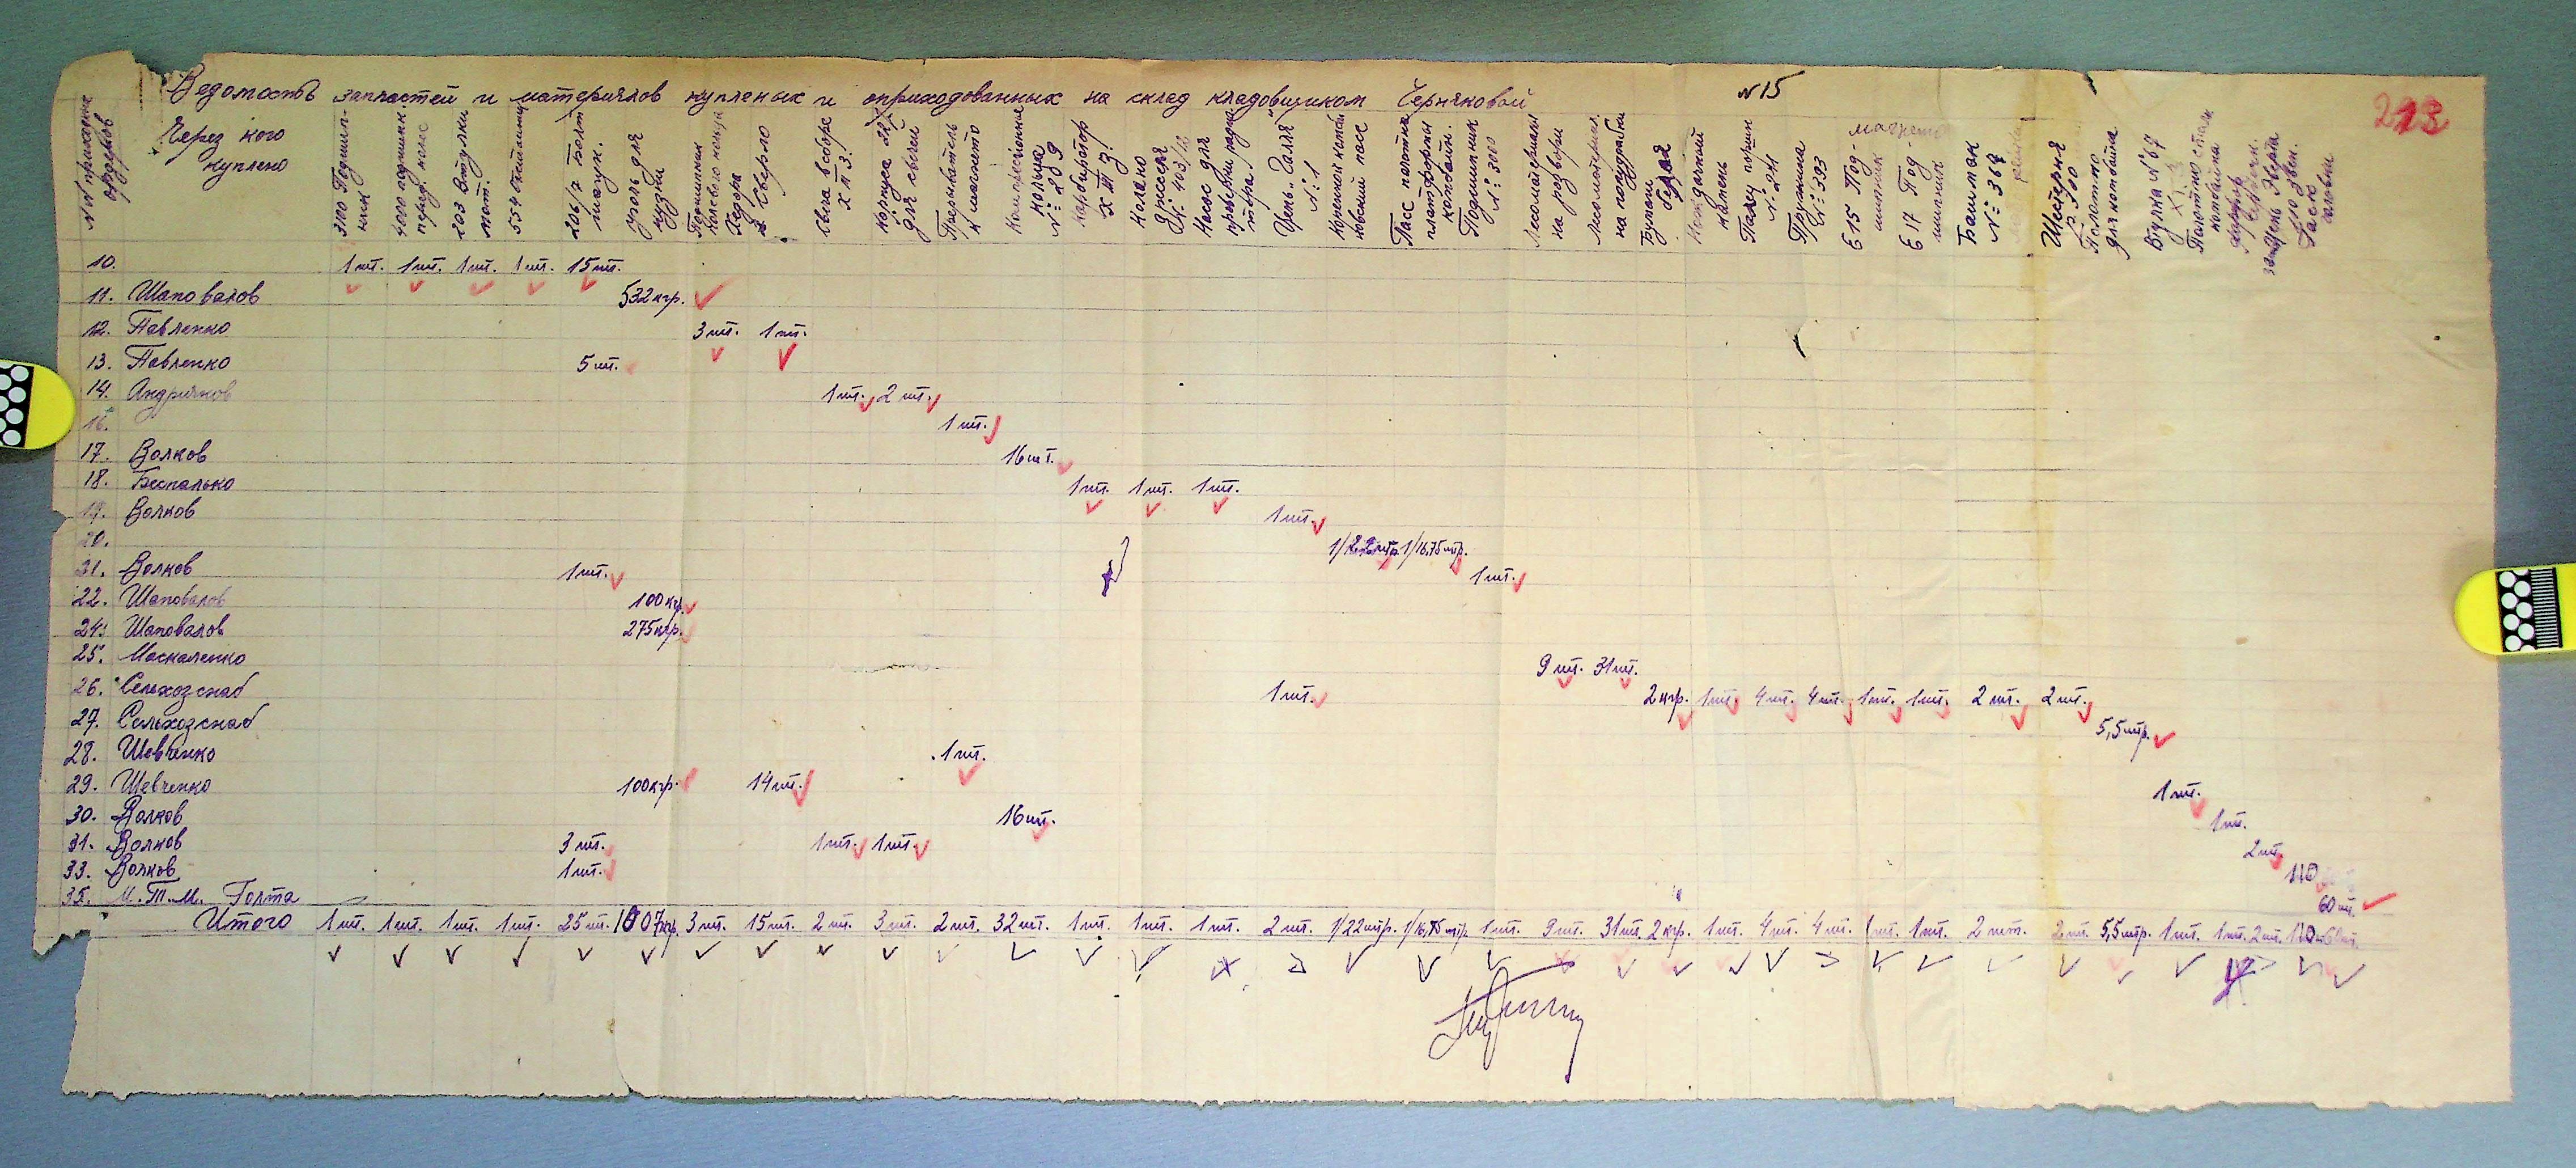 Ведомость запчастей и материялов купленых и оприходованных на склад кладовщиком Черняковой
№15
213
№ № прихожных ордеров
Через кого куплено
3100 Подшип-ник
4000 подшипник перед. колес
203 Втулки
554
206/7 Болт шатун.
Уголь для кузни
Подшипник
Сверло
Свеча в сборе ХТЗ.
Корпуса для свечей
Прерыватель к магнето
Компресионные кольца №: 209
Карбиратор ХТЗ
Колено
Насос для
Цепь „Галя" №:1
Пасс полотна платформы комбайн.
Подшипник №: 3000
Лесоматериалы на розвори
Лесоматериял на полудрабки
Бумаги белая
Наждачный камень
Палец поршня №: 244
Пружина №: 393
магнето
Е 15 Под-шипник
Е 17 Под-шипник
Башмак №: 369
Шестерня № 300
Полотно для комбайна
Втулка № 67
10. 1 шт. 1 шт. 1 шт. 1 шт. 15 шт.
11. Шаповалов 532 кгр.
12. Павленко 3 шт. 1 шт.
13. Павленко 5 шт.
14. Андрияков 1 шт. 2 шт.
16. 1 шт.
17. Волков 16 шт.
18. Беспалько 1 шт. 1 шт. 1 шт.
19. Волков 1 шт.
20. 1/22 мтр. 1/16,75 мтр.
21. Волков 1 шт. 1 шт.
22. Шаповалов 100 кгр.
24. Шаповалов 275 кгр.
25. Москаленко 9 шт. 31 шт.
26. Сельхозснаб 1 шт. 2 кгр. 1 шт. 4 шт. 4 шт. 1 шт. 1 шт. 2 шт. 2 шт.
27. Сельхозснаб 5,5 мтр.
28. Шевченко 1 шт.
29. Шевченко 100 кгр. 14 шт. 1 шт.
30. Волков 16 шт. 1 шт.
31. Волков 3 шт. 1 шт. 1 шт. 2 шт.
33. Волков 1 шт. 110
35. М.Т.М. Голта 60 шт.
Итого 1 шт. 1 шт. 1 шт. 1 шт. 25 шт. 1007 кгр. 3 шт. 15 шт. 2 шт. 3 шт. 2 шт. 32 шт. 1 шт. 1 шт. 1 шт. 2 шт. 1/22 мтр. 1/16,75 мтр. 1 шт. 9 шт. 31 шт. 2 кгр. 1 шт. 4 шт. 4 шт. 1 шт. 1 шт. 2 шт. 2 шт. 5,5 мтр. 1 шт. 1 шт. 2 шт. 110 60 шт.